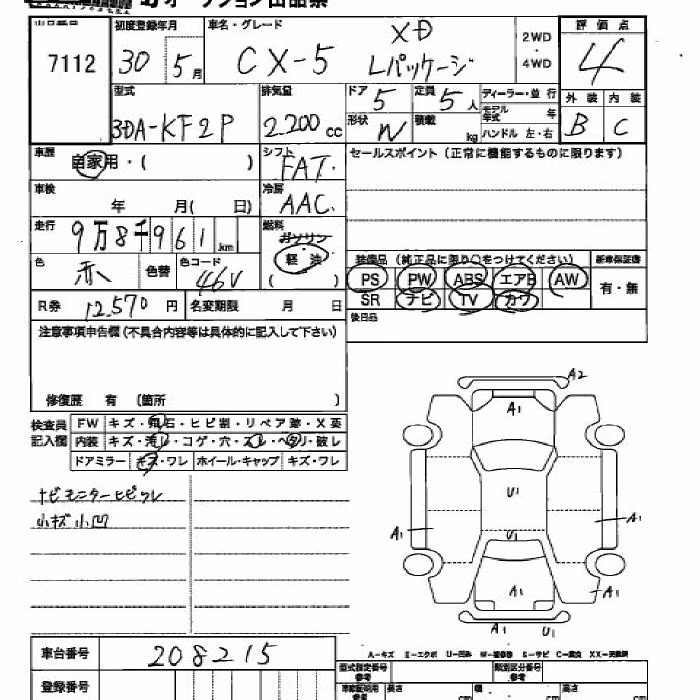 オークション出品票
出品番号 初度登録年月 車名・グレード XD 2WD 評価点
7112 30 5月 CX-5 Lパッケージ ・4WD 4
型式 排気量 ドア 5 定員 5人 ディーラー・並行 外装 内装
3DA-KF2P 2200cc 形状 W 積載 kg モデル年式 年 B C
ハンドル 左・右
車歴 自家用・( ) シフト FAT. セールスポイント(正常に機能するものに限ります)
車検 年 月( 日) 冷房 AAC.
走行 9万8千961km 燃料 ガソリン
軽油
色 赤 色替 色コード 46V ( )
装備品(純正品に限り○をつけてください) 新車保証書
PS PW ABS エアB AW 有・無
R券 12,570円 名変期限 月 日 SR ナビ TV カワ
後日品
注意事項申告欄(不具合内容等は具体的に記入して下さい)
修復歴 有 (箇所 )
検査員記入欄 FW キズ・飛石・ヒビ割・リペア跡・X要
内装 キズ・汚レ・コゲ・穴・スレ・ヘタリ・破レ
ドアミラー キズ・ワレ ホイール・キャップ キズ・ワレ
ナビモニターヒビワレ
小キズ小凹
A2
A1
U1
A1 U1 A1
A1 A1
A1 U1
A-キズ E-エクボ U-凹み W-補修跡 S-サビ C-腐食 XX-交換済
車台番号 208215
型式指定番号 参考 類別区分番号 参考
登録番号 車検証明用 参考 長さ cm 幅 cm 高さ cm